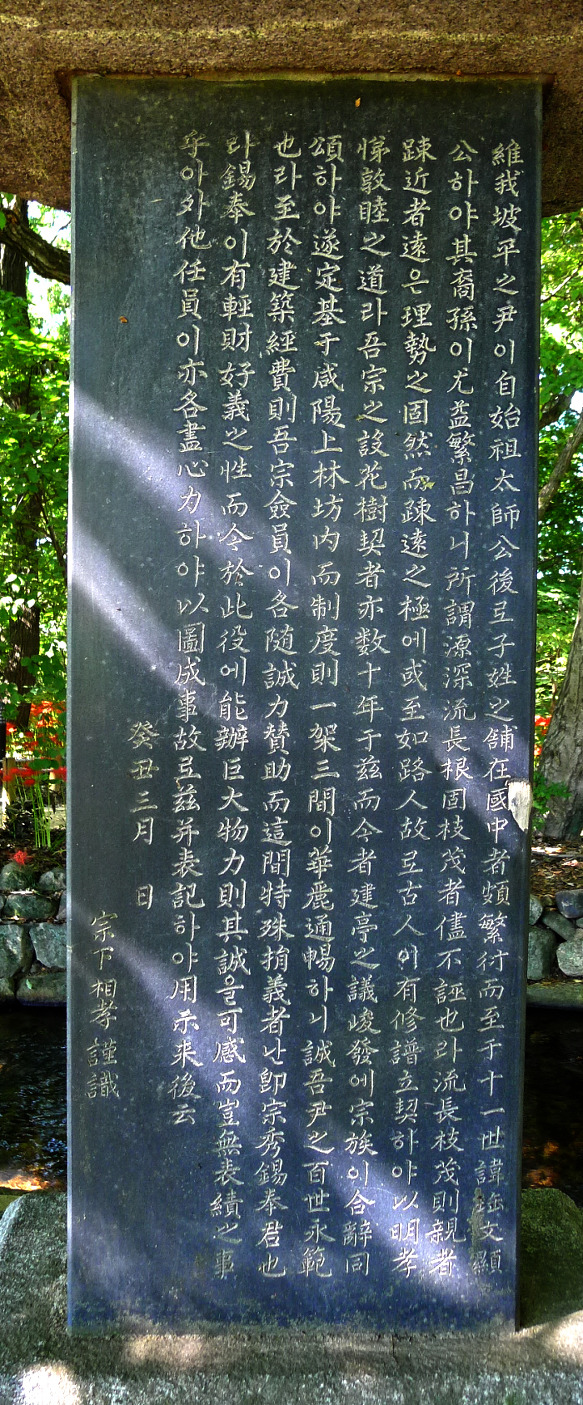 維我坡平之尹이自始祖太師公後로子姓之舖在國中者頗繁衍而至于十一世諱 文顯
公하야其裔孫이尤益繁昌하니所謂源深流長根固枝茂者儘不誣也라流長枝茂則親者
踈近者遠은理勢之固然而踈遠之極에或至如路人故로古人이有修譜立契하야以明孝
悌敦睦之道라吾宗之設花樹契者亦数十年于玆而今者建亭之議峻發에宗族이合辭同
頌하야遂定基于咸陽上林坊内而制度則一架三間이華麗通暢하니誠吾尹之百世永範
也라至於建築經費則吾宗僉員이各随誠力賛助而這間特殊捐義者난卽宗秀錫奉君也
라錫奉이有輕財好義之性而今於此役에能辦巨大物力則其誠을可感而豈無表績之事
乎아外他任員이亦各盡心力하야以圖成事故로玆并表記하야用示来後云
癸丑三月 日
宗下相孝謹識